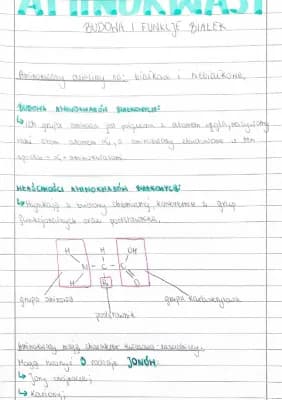 AMINOKWASY
BUDOWA I FUNKCJE BIAŁEK
Aminokwasy dzielimy na: białkowe i niebiałkowe.
BUDOWA AMINOKWASÓW BIAŁKOWYCH:
↳ Ich grupa aminowa jest połączona z atomem węgla, nazywany
WŁAŚCIWOŚCI AMINOKWASÓW BIAŁKOWYCH:
↳ Wynikają z budowy chemicznej konkretnie z grup
funkcyjnych oraz podstawnika.
H H OH
N - C - C
H R O
grupa aminowa grupa karboksylowa
podstawnik
Aminokwasy mają charakter kwasowo-zasadowy.
Mogą tworzyć 3 rodzaje JONÓW:
↳ Jony obojnacze,
↳ Kationy,